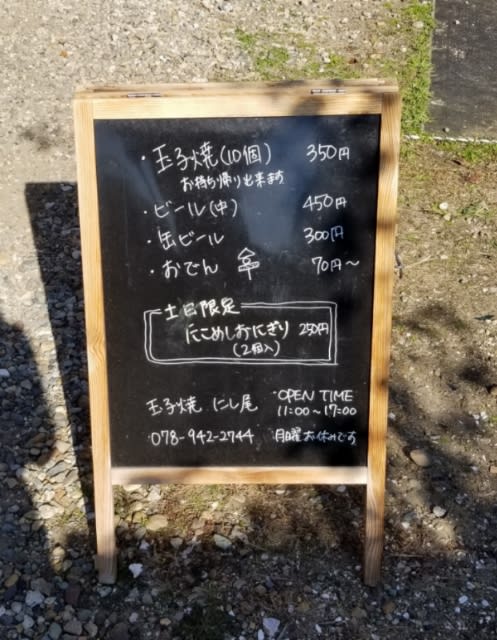 ・玉子焼(10個) 350円
お持ち帰り出来ます
・ビール(中) 450円
・缶ビール 300円
・おでん 70円〜
土日限定
にこめしおにぎり 250円
(2個入)
玉子焼 にし尾 OPEN TIME
11:00〜17:00
078-942-2744 月曜お休みです